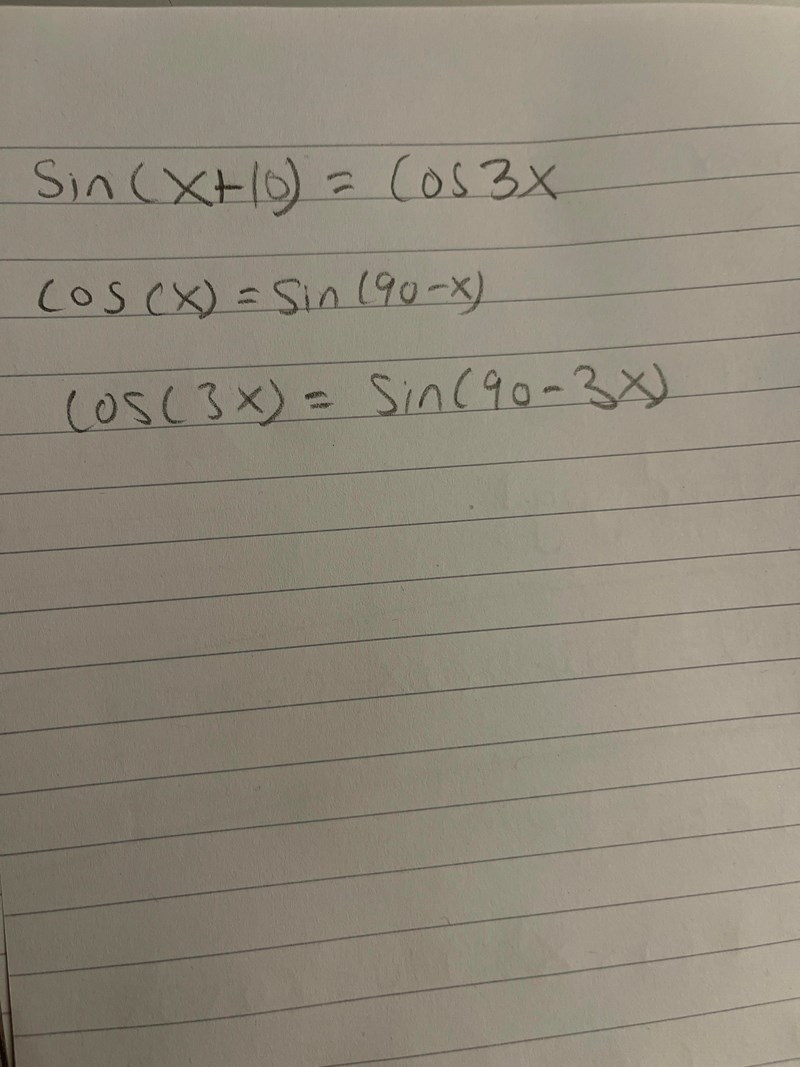 Sin(x+10) = Cos3x
Cos(x) = Sin(90-x)
Cos(3x) = Sin(90-3x)